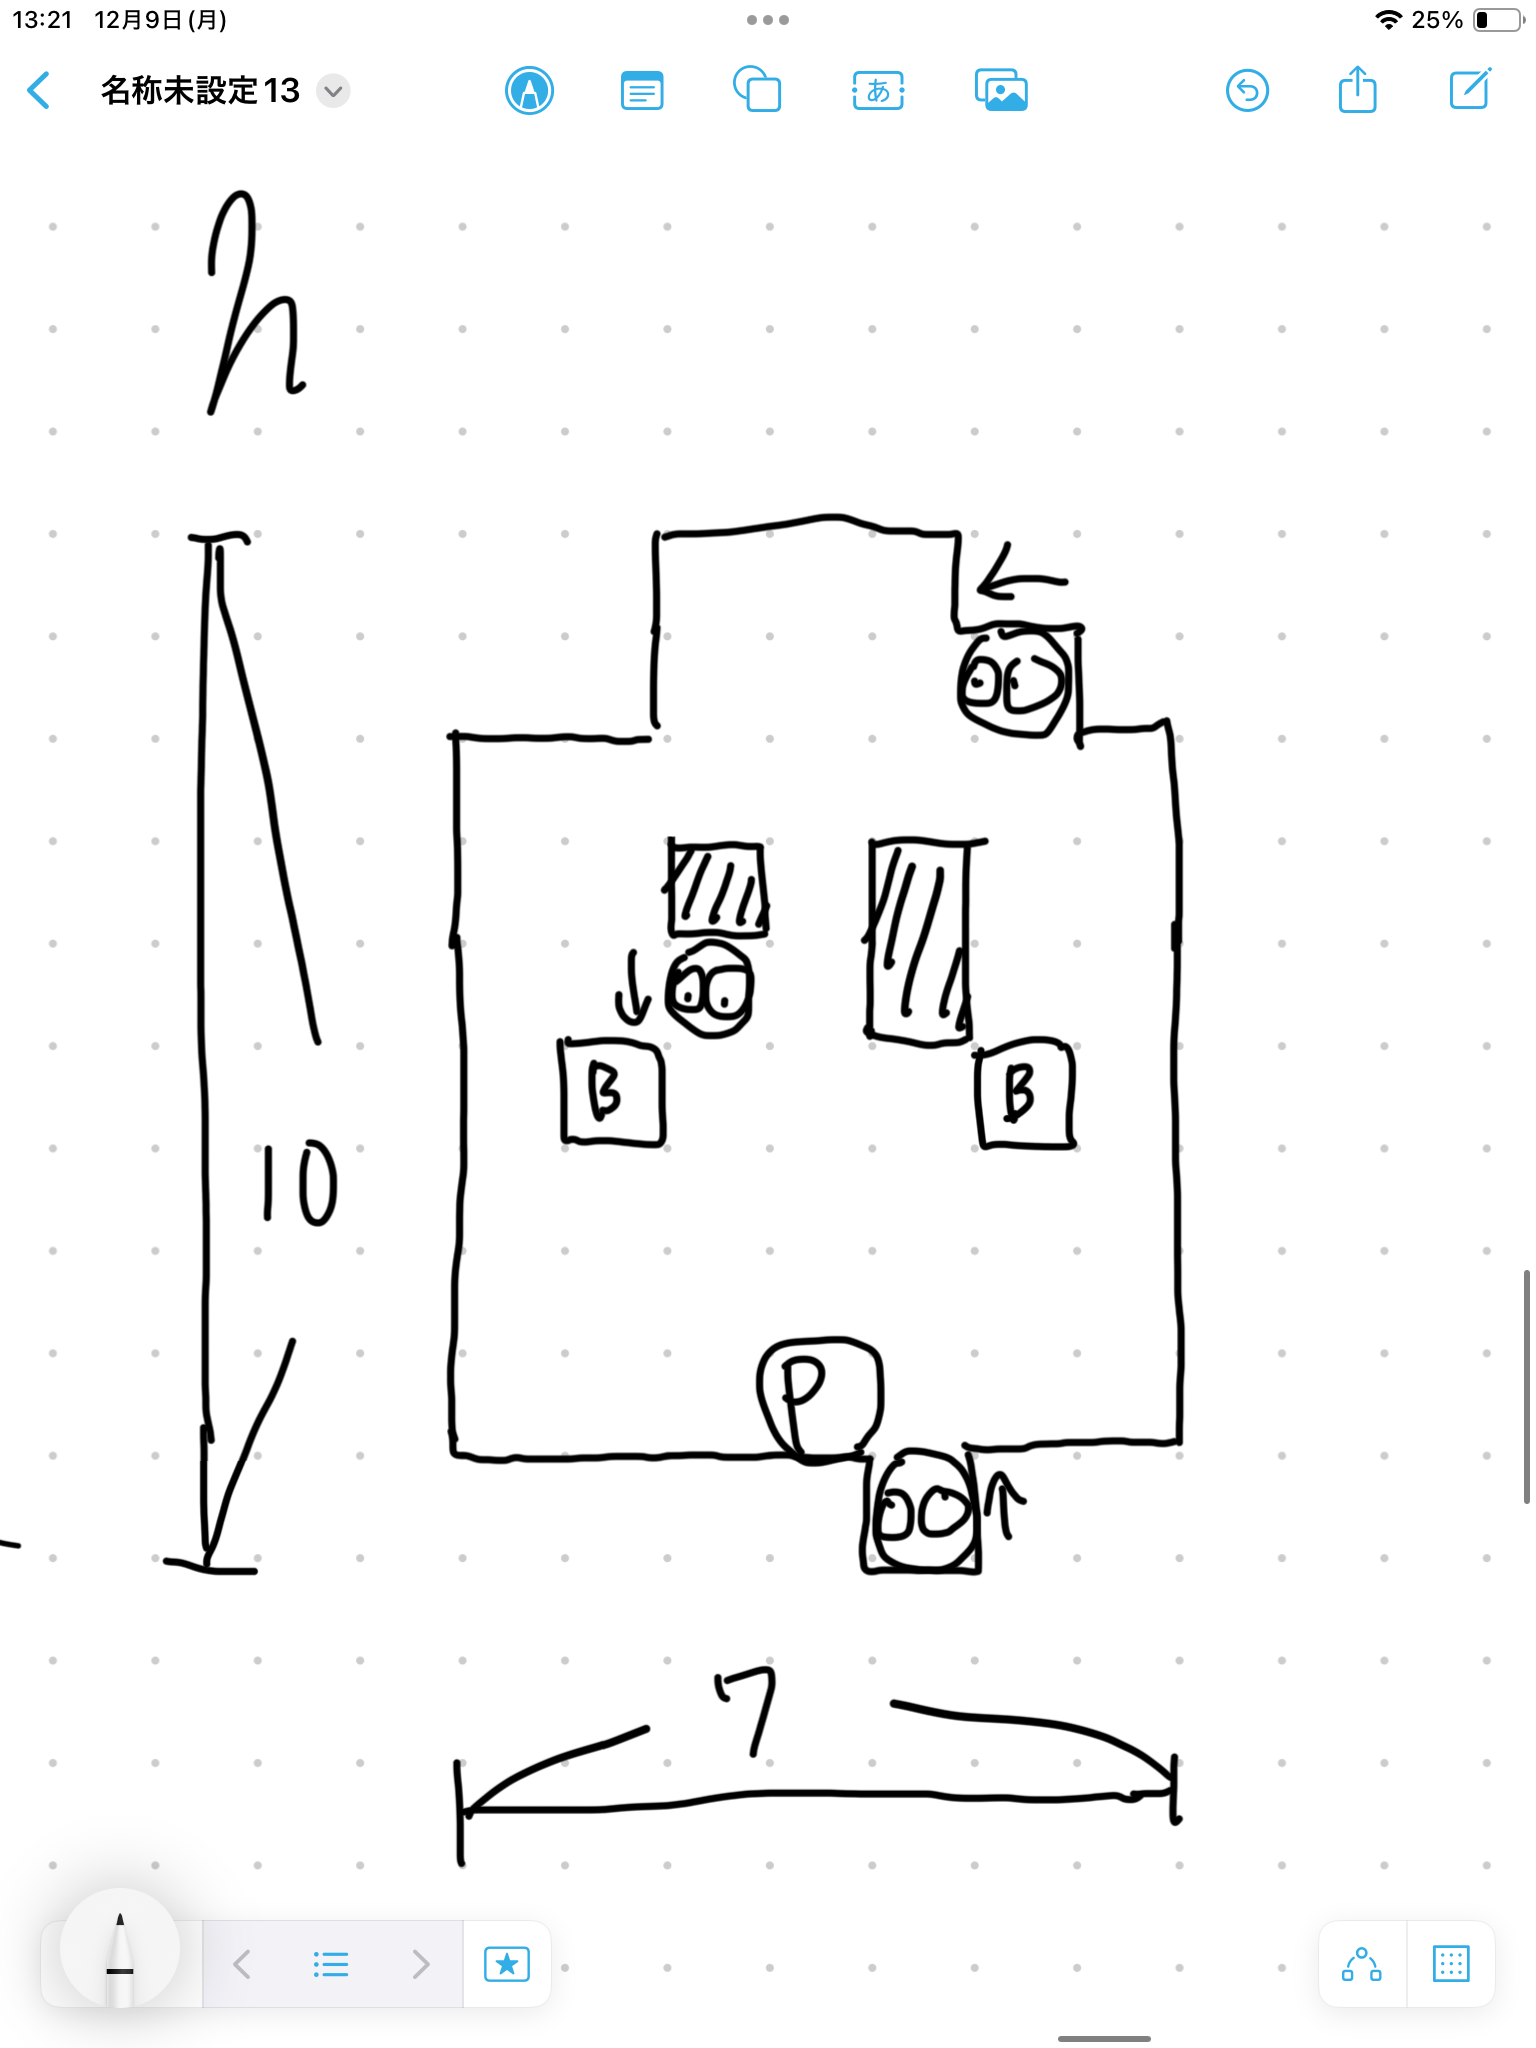 13:21 12月9日(月) 25%
名称未設定13
あ
h
B B
10
P
7